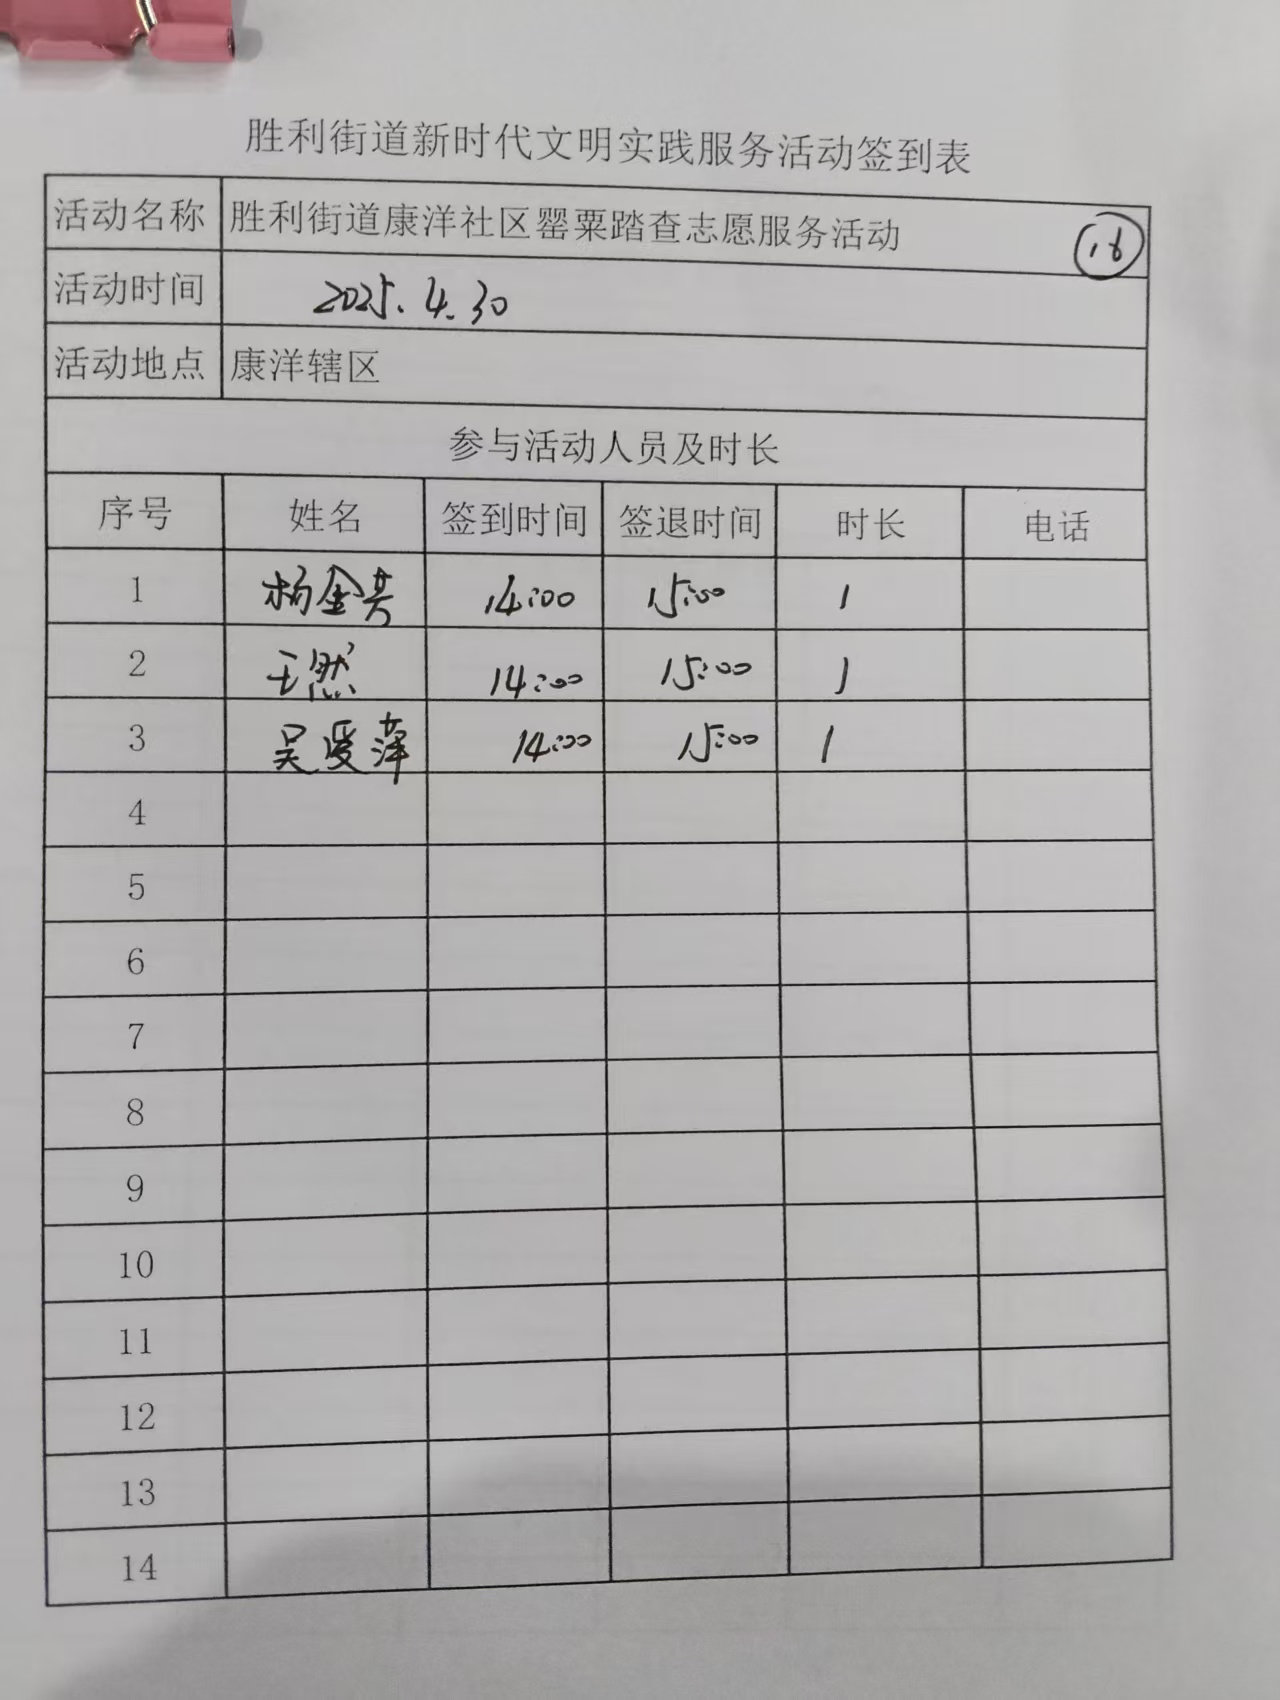 胜利街道新时代文明实践服务活动签到表
活动名称 胜利街道康洋社区罂粟踏查志愿服务活动 16
活动时间 2025.4.30
活动地点 康洋辖区
参与活动人员及时长
序号 姓名 签到时间 签退时间 时长 电话
1 杨金英 14:00 15:00 1
2 王然 14:00 15:00 1
3 吴爱萍 14:00 15:00 1
4
5
6
7
8
9
10
11
12
13
14